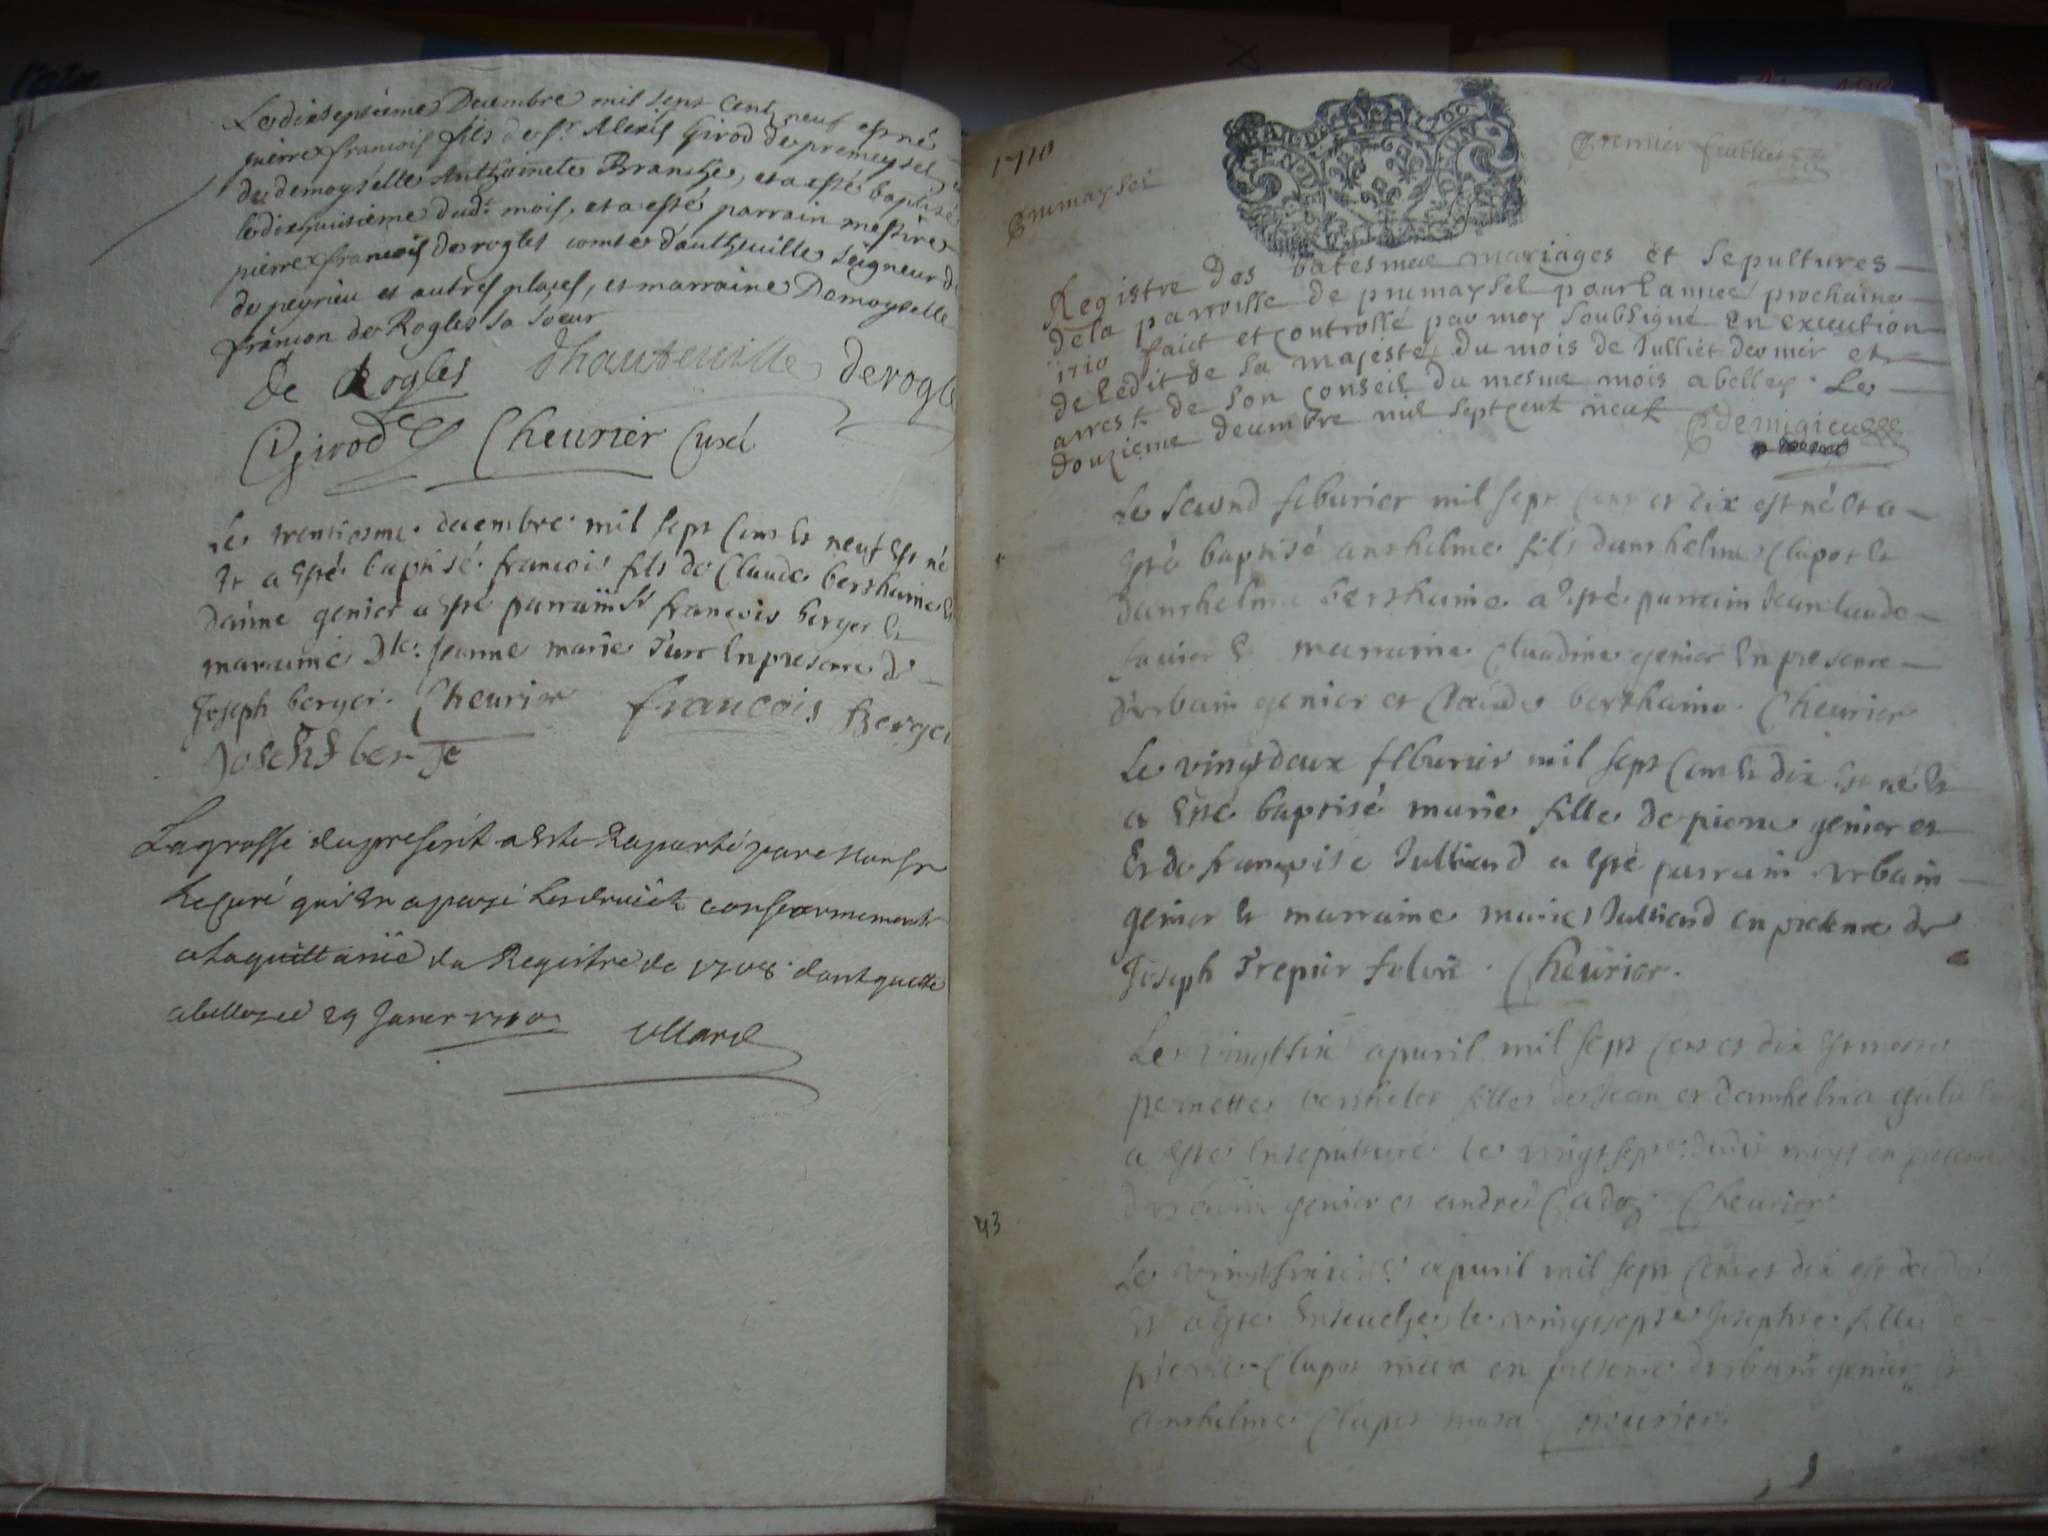 Le dixseptieme Decembre mil sept Cent neuf est né
pierre francois fils de Sr. Alexis Girod de premeysel et
de demoyselle Anthoinete Branche, et a esté baptisé
le dixhuitieme dudt. mois, et a esté parrain messire
pierre francois de rogles comte d'authuille seigneur de
de peyrieu et autres places, et marraine Demoyselle
francon de Rogles sa soeur
de Rogles dhauteuille derogle
Girod Cheurier Curé
Le trentiesme decembre mil sept Cens et neuf Est né
Et a Esté baptisé francois fils de Claude berthaine et
danne genier a esté parrain Sr francois berger et
marraine Dle. Jeanne marie En presence de
Joseph berger. Cheurier francois Berger
Joseht ber je
La grosse du present a este Raporté par
le Curé qui En a payé les droicts conformement
a la quittance du Registre de 1708 dont quitte
a belley ce 29 Janer 1710
1710
Prumaysel
Premier feuillet
Registre des batesmes mariages et sepultures
de la parroisse de prumaysel pour l'annee prochaine
1710 faict et controllé par moy soubsigné En execution
de l'edit de sa majesté du mois de Julliet dernier et
arrest de son conseil du mesme mois a belley. Le
douzieme decembre mil sept cent neuf Demigieu
Le second feburier mil sept Cent et dix est né et a
Esté baptisé anthelme fils danthelme Clapot et
danthelma berthaine a esté parrain Jean laude
fauier et marraine Claudine genier En presence
d'urbain genier et Claude berthaine. Cheurier
Le vingtdeux feburier mil sept Cens et dix est né et
a Esté baptisé marie fille de pierre genier et
Et de francoise Julliand a esté parrain urbain
genier et marraine marie Julliand en presence de
Joseph Trepier Cheurier.
Le vingtsix apuril mil sept Cens et dix Est morte
pernette berthelet fille de Jean et danthelma
a este Ensepulturé le vingtsept dudit moys en presence
durbain genier et andré Cadoz. Cheurier
Le apuril mil sept Cens et dix est
Et a este Enseuelye le vingtsepte Josephte fille de
pierre Clapot en presence durbain genier et
anthelme Clapot Cheurier
43